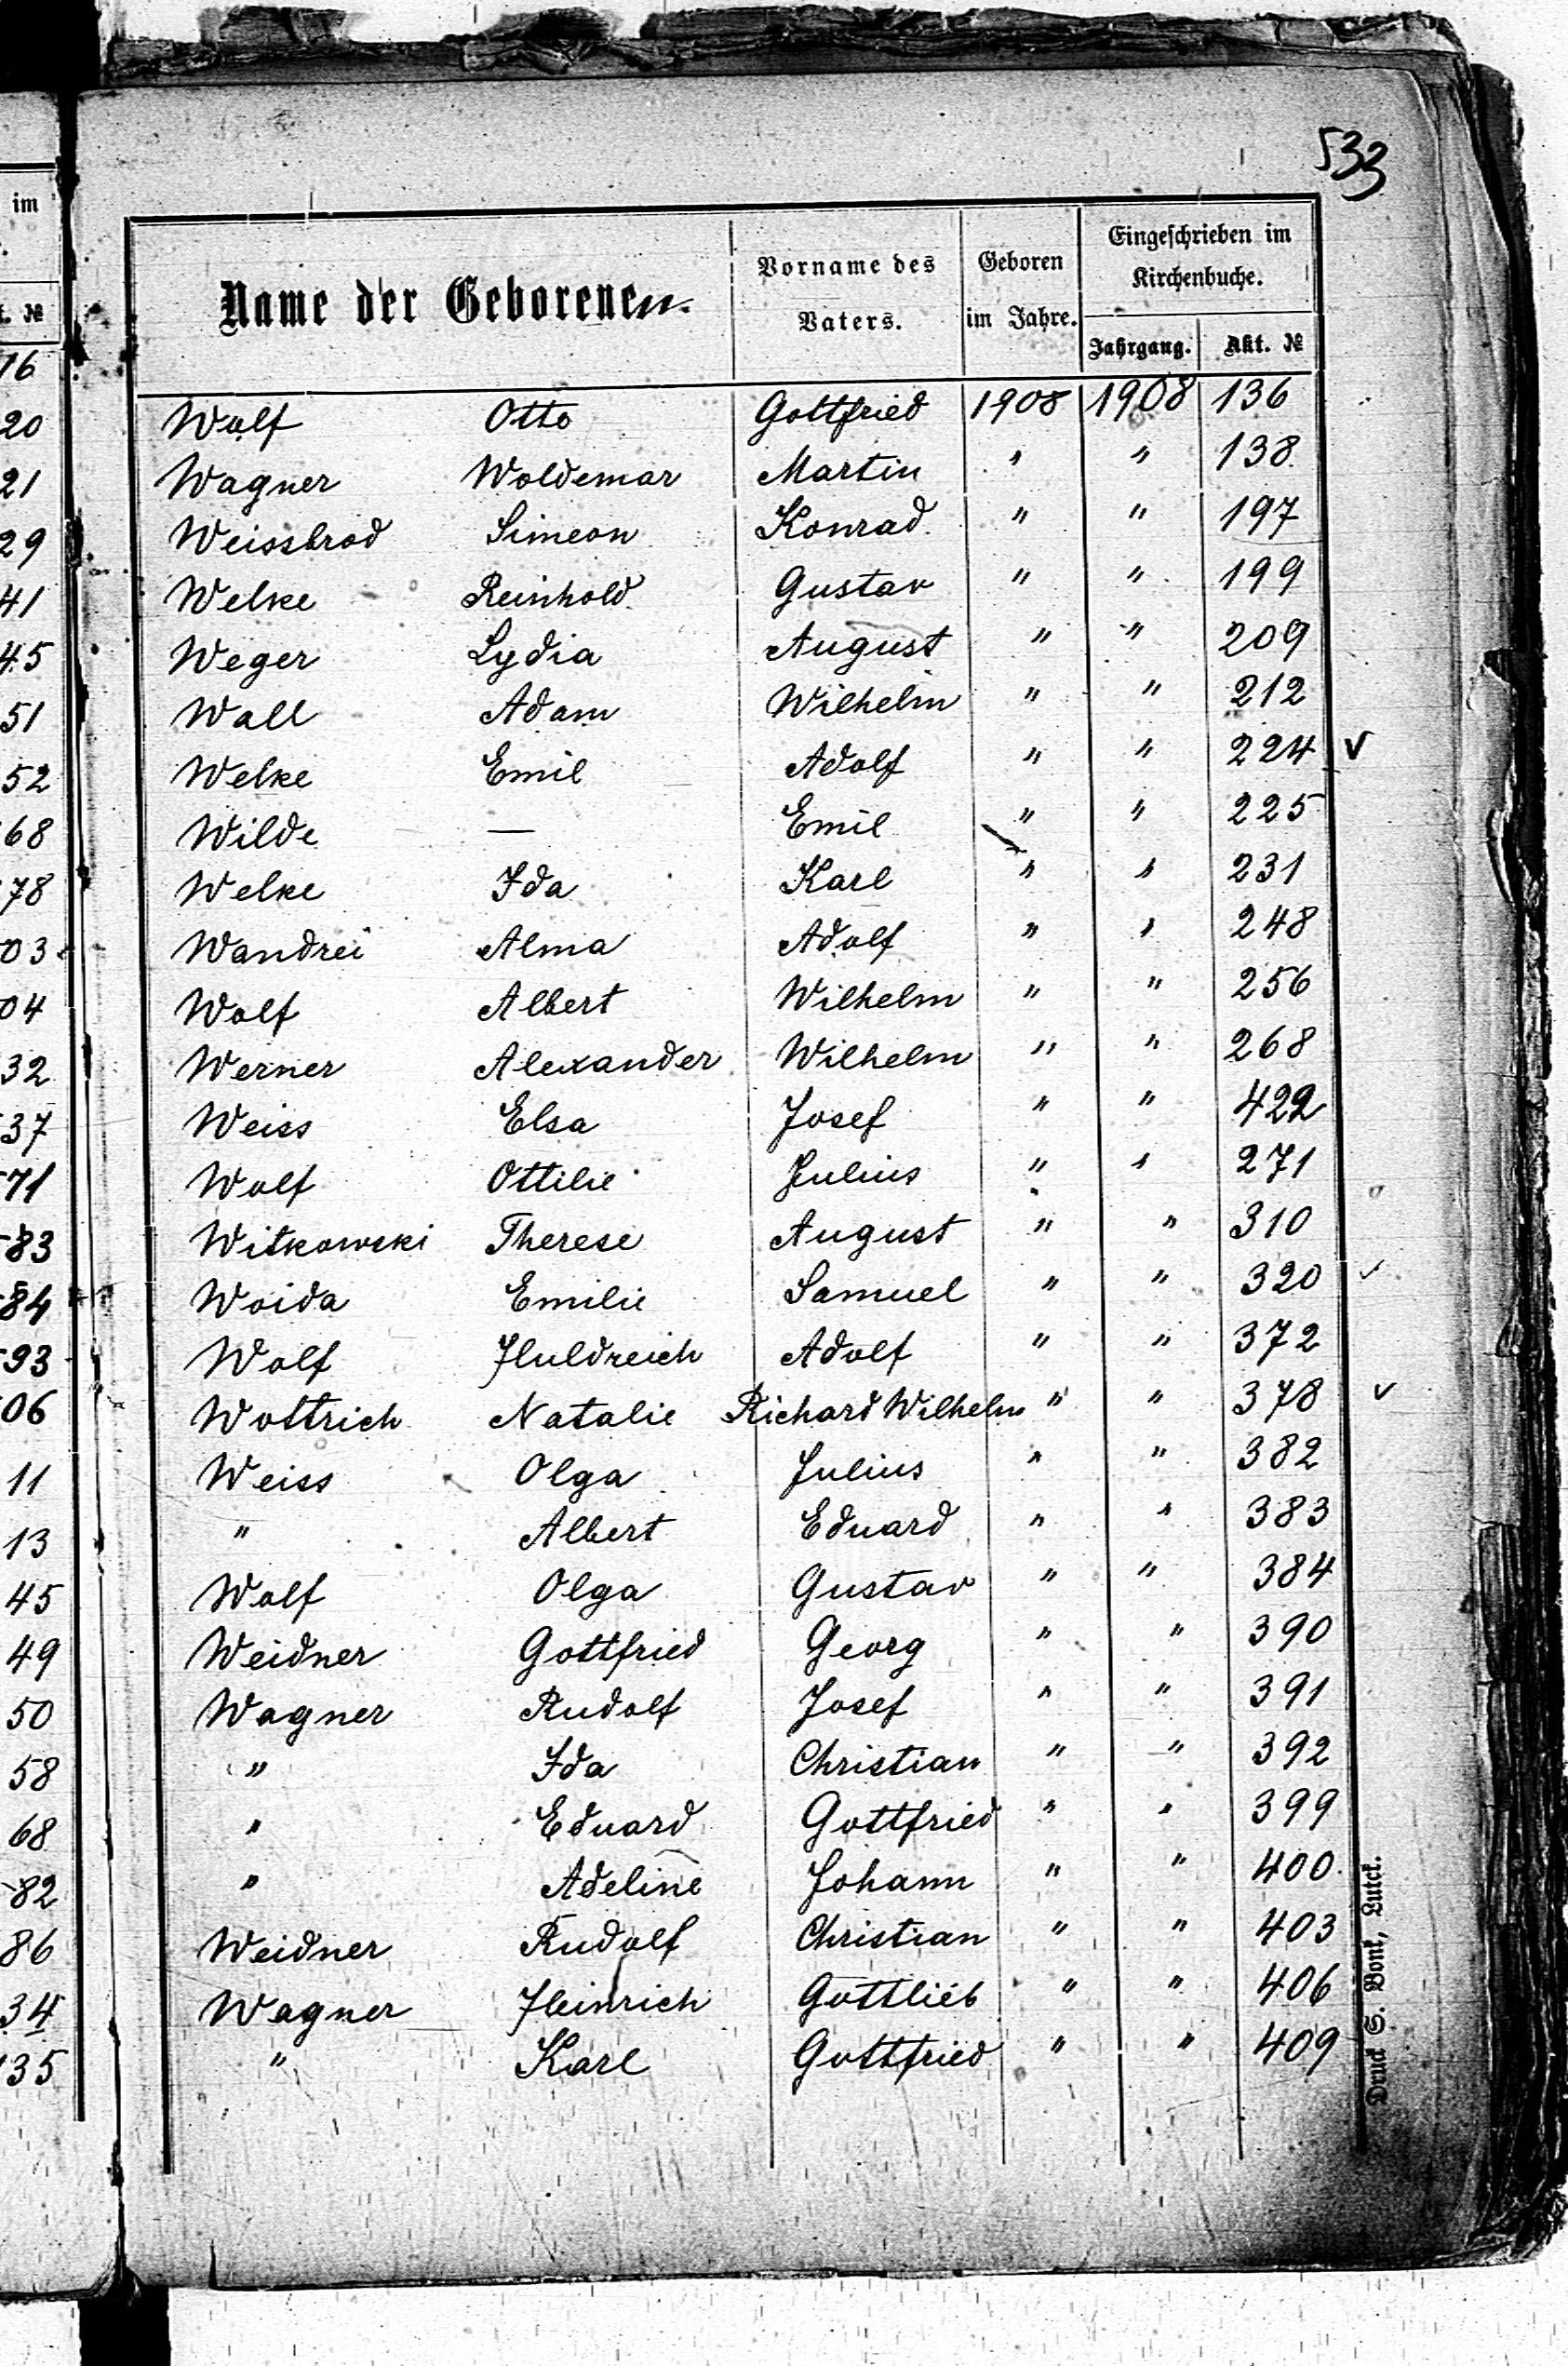 im
t. №
16
20
21
29
41
45
51
52
68
78
03
04
32
37
71
83
84
93
06
11
13
45
49
50
58
68
82
86
34
35
533
Name der Geborenen.
Vorname des Vaters.
Geboren im Jahre.
Eingeschrieben im Kirchenbuche.
Jahrgang. Akt. №
Wolf Otto Gottfried 1908 1908 136
Wagner Woldemar Martin " " 138
Weissbrod Simeon Konrad " " 197
Welke Reinhold Gustav " " 199
Weger Lydia August " " 209
Wall Adam Wilhelm " " 212
Welke Emil Adolf " " 224 ✓
Wilde — Emil " " 225
Welke Ida Karl " " 231
Wandrei Alma Adolf " " 248
Wolf Albert Wilhelm " " 256
Werner Alexander Wilhelm " " 268
Weiss Elsa Josef " " 422
Wolf Ottilie Julius " " 271
Witkowski Therese August " " 310
Woida Emilie Samuel " " 320 ✓
Wolf Huldreich Adolf " " 372
Wottrich Natalie Richard Wilhelm " " 378 ✓
Weiss Olga Julius " " 382
" Albert Eduard " " 383
Wolf Olga Gustav " " 384
Weidner Gottfried Georg " " 390
Wagner Rudolf Josef " " 391
" Ida Christian " " 392
" Eduard Gottfried " " 399
" Adeline Johann " " 400
Weidner Rudolf Christian " " 403
Wagner Heinrich Gottlieb " " 406
" Karl Gottfried " " 409
Druck S. Bonk, Lutck.